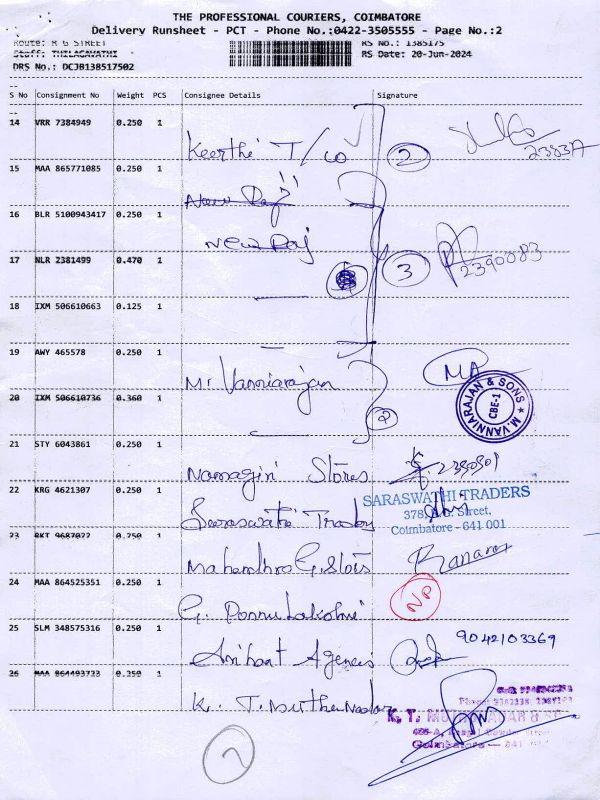 THE PROFESSIONAL COURIERS, COIMBATORE
Delivery Runsheet - PCT - Phone No.:0422-3505555 - Page No.:2
Route: R G STREET
RS No.: 1385175
Staff: THILAGAVATHI
RS Date: 20-Jun-2024
DRS No.: DCJB138517502
S No Consignment No Weight PCS Consignee Details Signature
14 VRR 7384949 0.250 1
Keerthi T/co 2 23837
15 MAA 865771085 0.250 1
New Raj
16 BLR 5100943417 0.250 1
New Raj
17 NLR 2381499 0.470 1
3 2390083
18 IXM 506610663 0.125 1
19 AWY 465578 0.250 1
M. Vanniarajan MA
20 IXM 506610736 0.360 1
2
M. VANNIARAJAN & SONS
CBE-1
21 STY 6043861 0.250 1
Namagiri Stores
22 KRG 4621307 0.250 1
SARASWATHI TRADERS
Saraswathi 378, Street,
Coimbatore - 641 001
23 RKT 9687022 0.250 1
Mahendhra G. Stores
24 MAA 864525351 0.250 1
G. Ponnu Lakshmi NP
25 SLM 348575316 0.250 1
Arihant Agencies 9042103369
26 MAA 864493723 0.250 1
K. T. Muthu Nadar
K. T.
Coimbatore
2